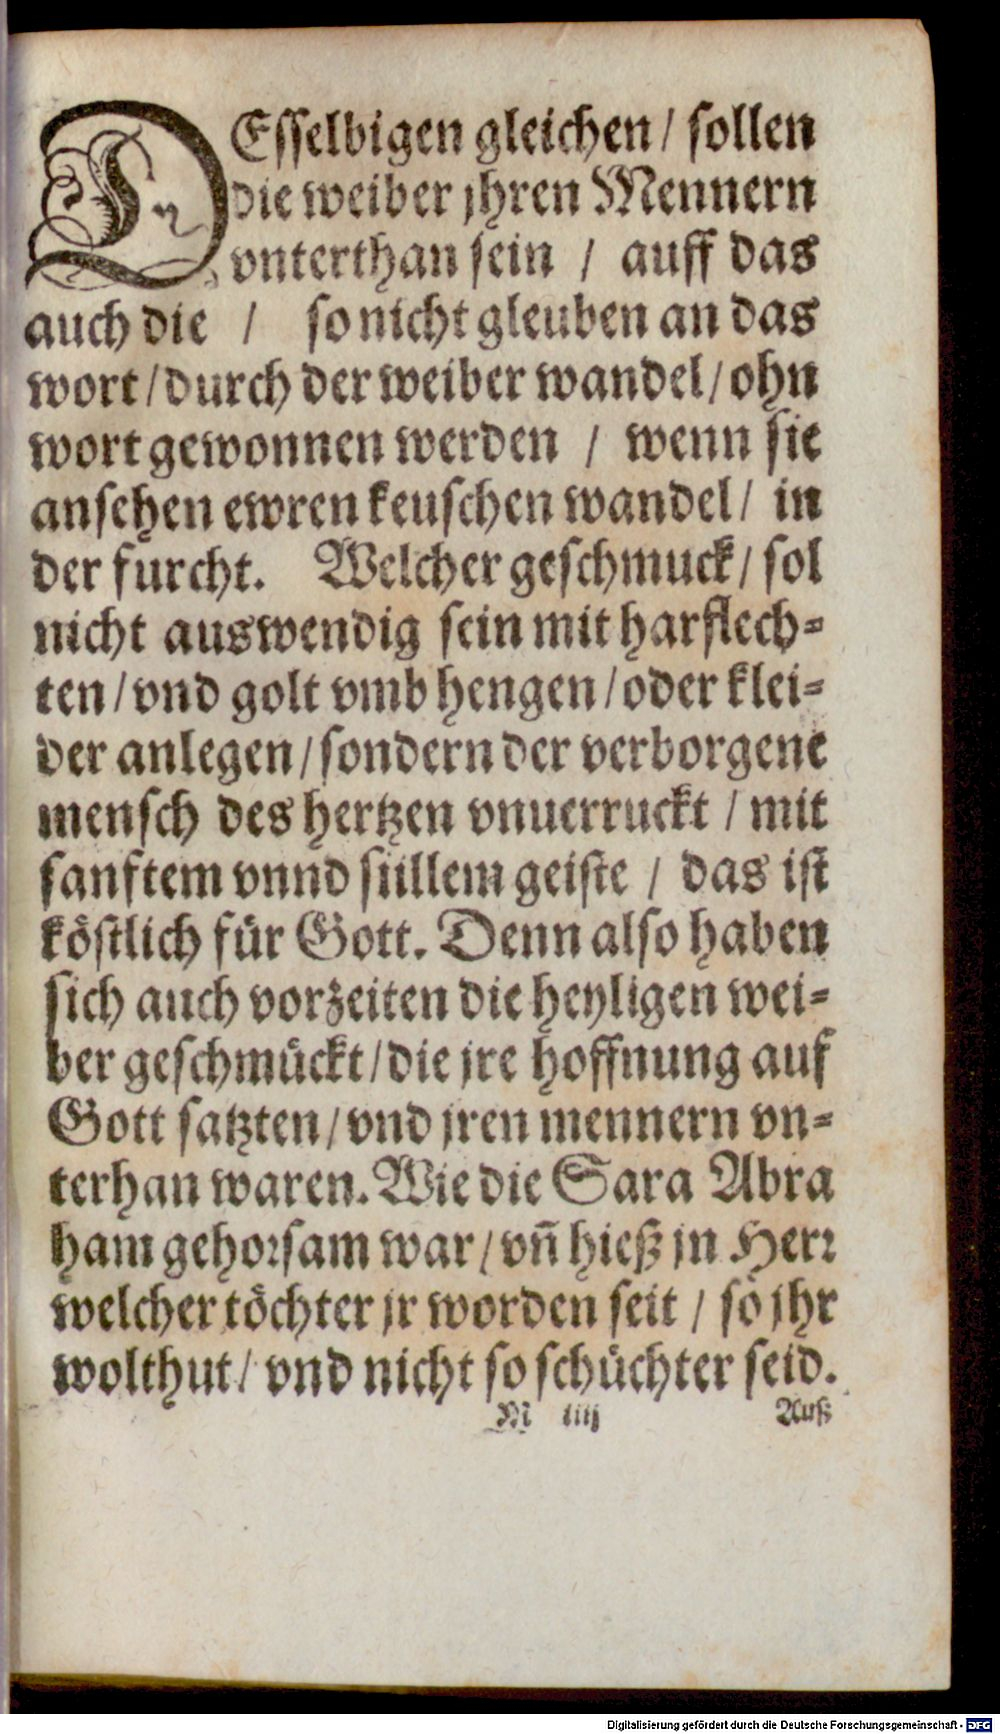 DEsselbigen gleichen / sollen
die weiber jhren Mennern
vnterthan sein / auff das
auch die / so nicht gleuben an das
wort / durch der weiber wandel / ohn
wort gewonnen werden / wenn sie
ansehen ewren keuschen wandel / in
der furcht. Welcher geschmuck / sol
nicht auswendig sein mit harflech-
ten / vnd golt vmb hengen / oder klei-
der anlegen / sondern der verborgene
mensch des hertzen vnuerruckt / mit
sanftem vnnd stillem geiste / das ist
köstlich für Gott. Denn also haben
sich auch vorzeiten die heyligen wei-
ber geschmückt / die jre hoffnung auf
Gott satzten / vnd jren mennern vn-
terhan waren. Wie die Sara Abra
ham gehorsam war / vn̄ hieß jn Herr
welcher töchter jr worden seit / so jhr
wolthut / vnd nicht so schüchter seid.
M iiij Auß
Digitalisierung gefördert durch die Deutsche Forschungsgemeinschaft - DFG